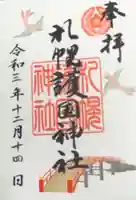 奉拝
札幌護国神社
札幌
神社
令和三年十二月十四日